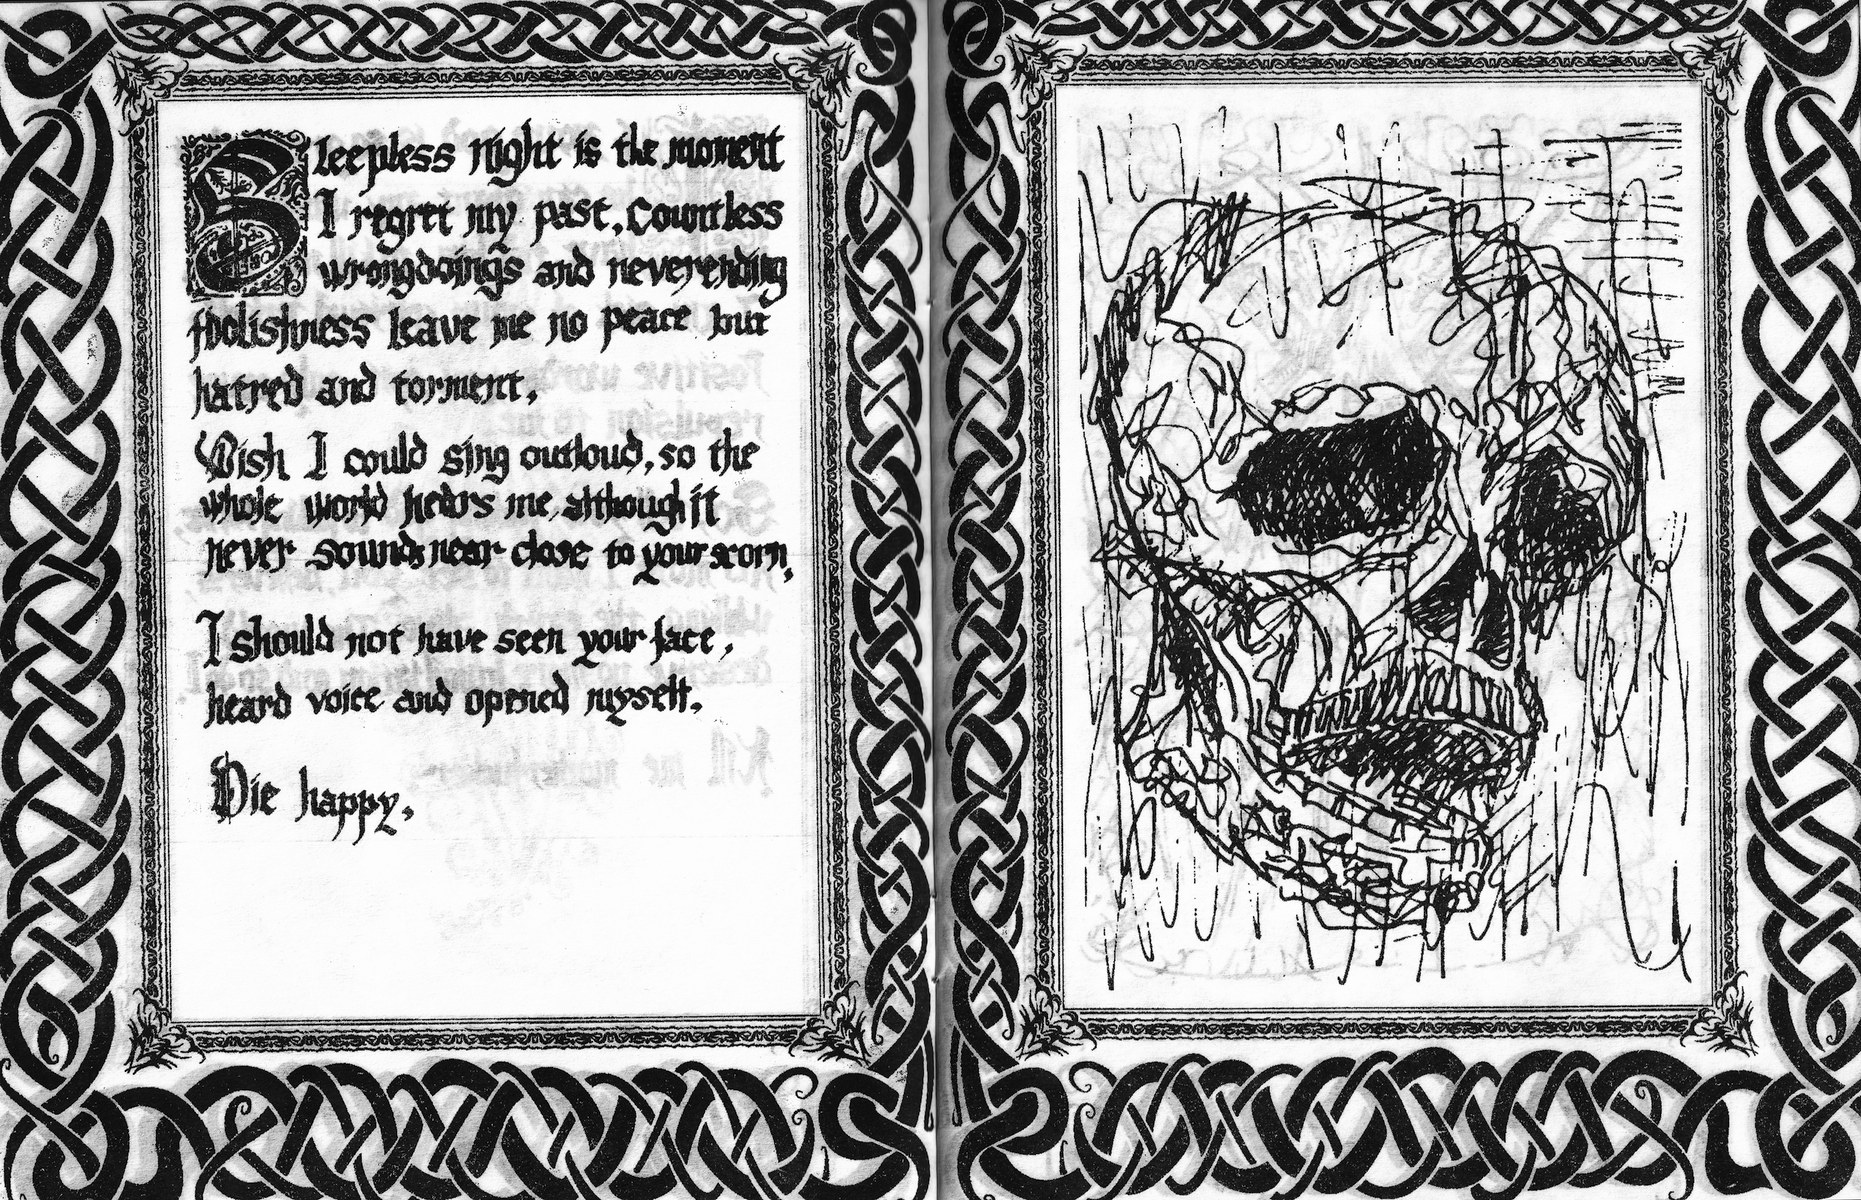 Sleepless night is the moment
I regret my past. Countless
wrongdoings and neverending
foolishness leave me no peace but
hatred and torment.
Wish I could sing outloud, so the
whole world hears me, although it
never sounds near close to your scorn.
I should not have seen your face,
heard voice and opened myself.
Die happy.